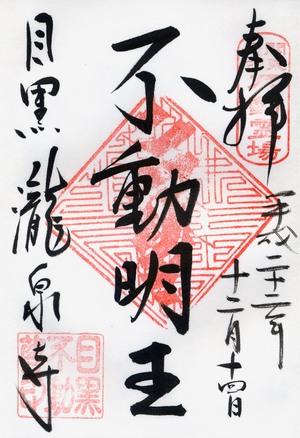 奉拝
平成二十二年
十二月十四日
不動明王
目黒瀧泉寺